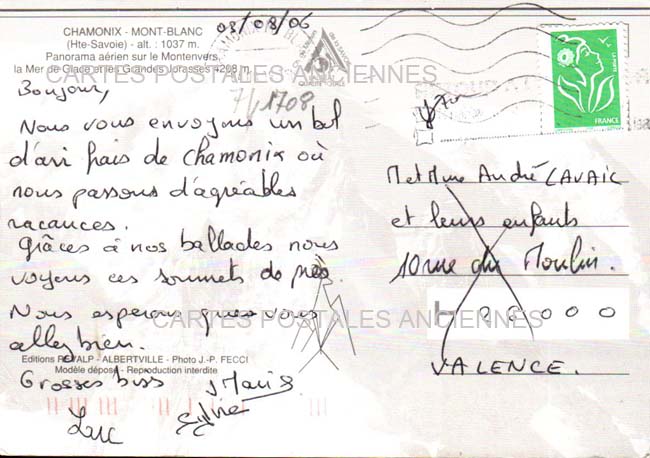 03/08/06
CHAMONIX - MONT-BLANC
(Hte-Savoie) - alt. : 1037 m.
Panorama aérien sur le Montenvers,
la Mer de Glace et les Grandes Jorasses 4208 m.
CARTES POSTALES ANCIENNES
7/1708
Bonjour,
Nous vous envoyons un bol
d'air frais de chamonix où
nous passons d'agréables
vacances.
Grâces à nos ballades nous
voyons ces sommets de près.
Nous esperons que vous
allez bien.
CARTES POSTALES ANCIENNES
Editions ROYALP - ALBERTVILLE - Photo J.-P. FECCI
Modèle déposé - Reproduction interdite
Grosses bises
Luc
Sylvie
FRANCE
M et Mme André CAVAIC
et leurs enfants
10 rue du Moulin.
26000
VALENCE.